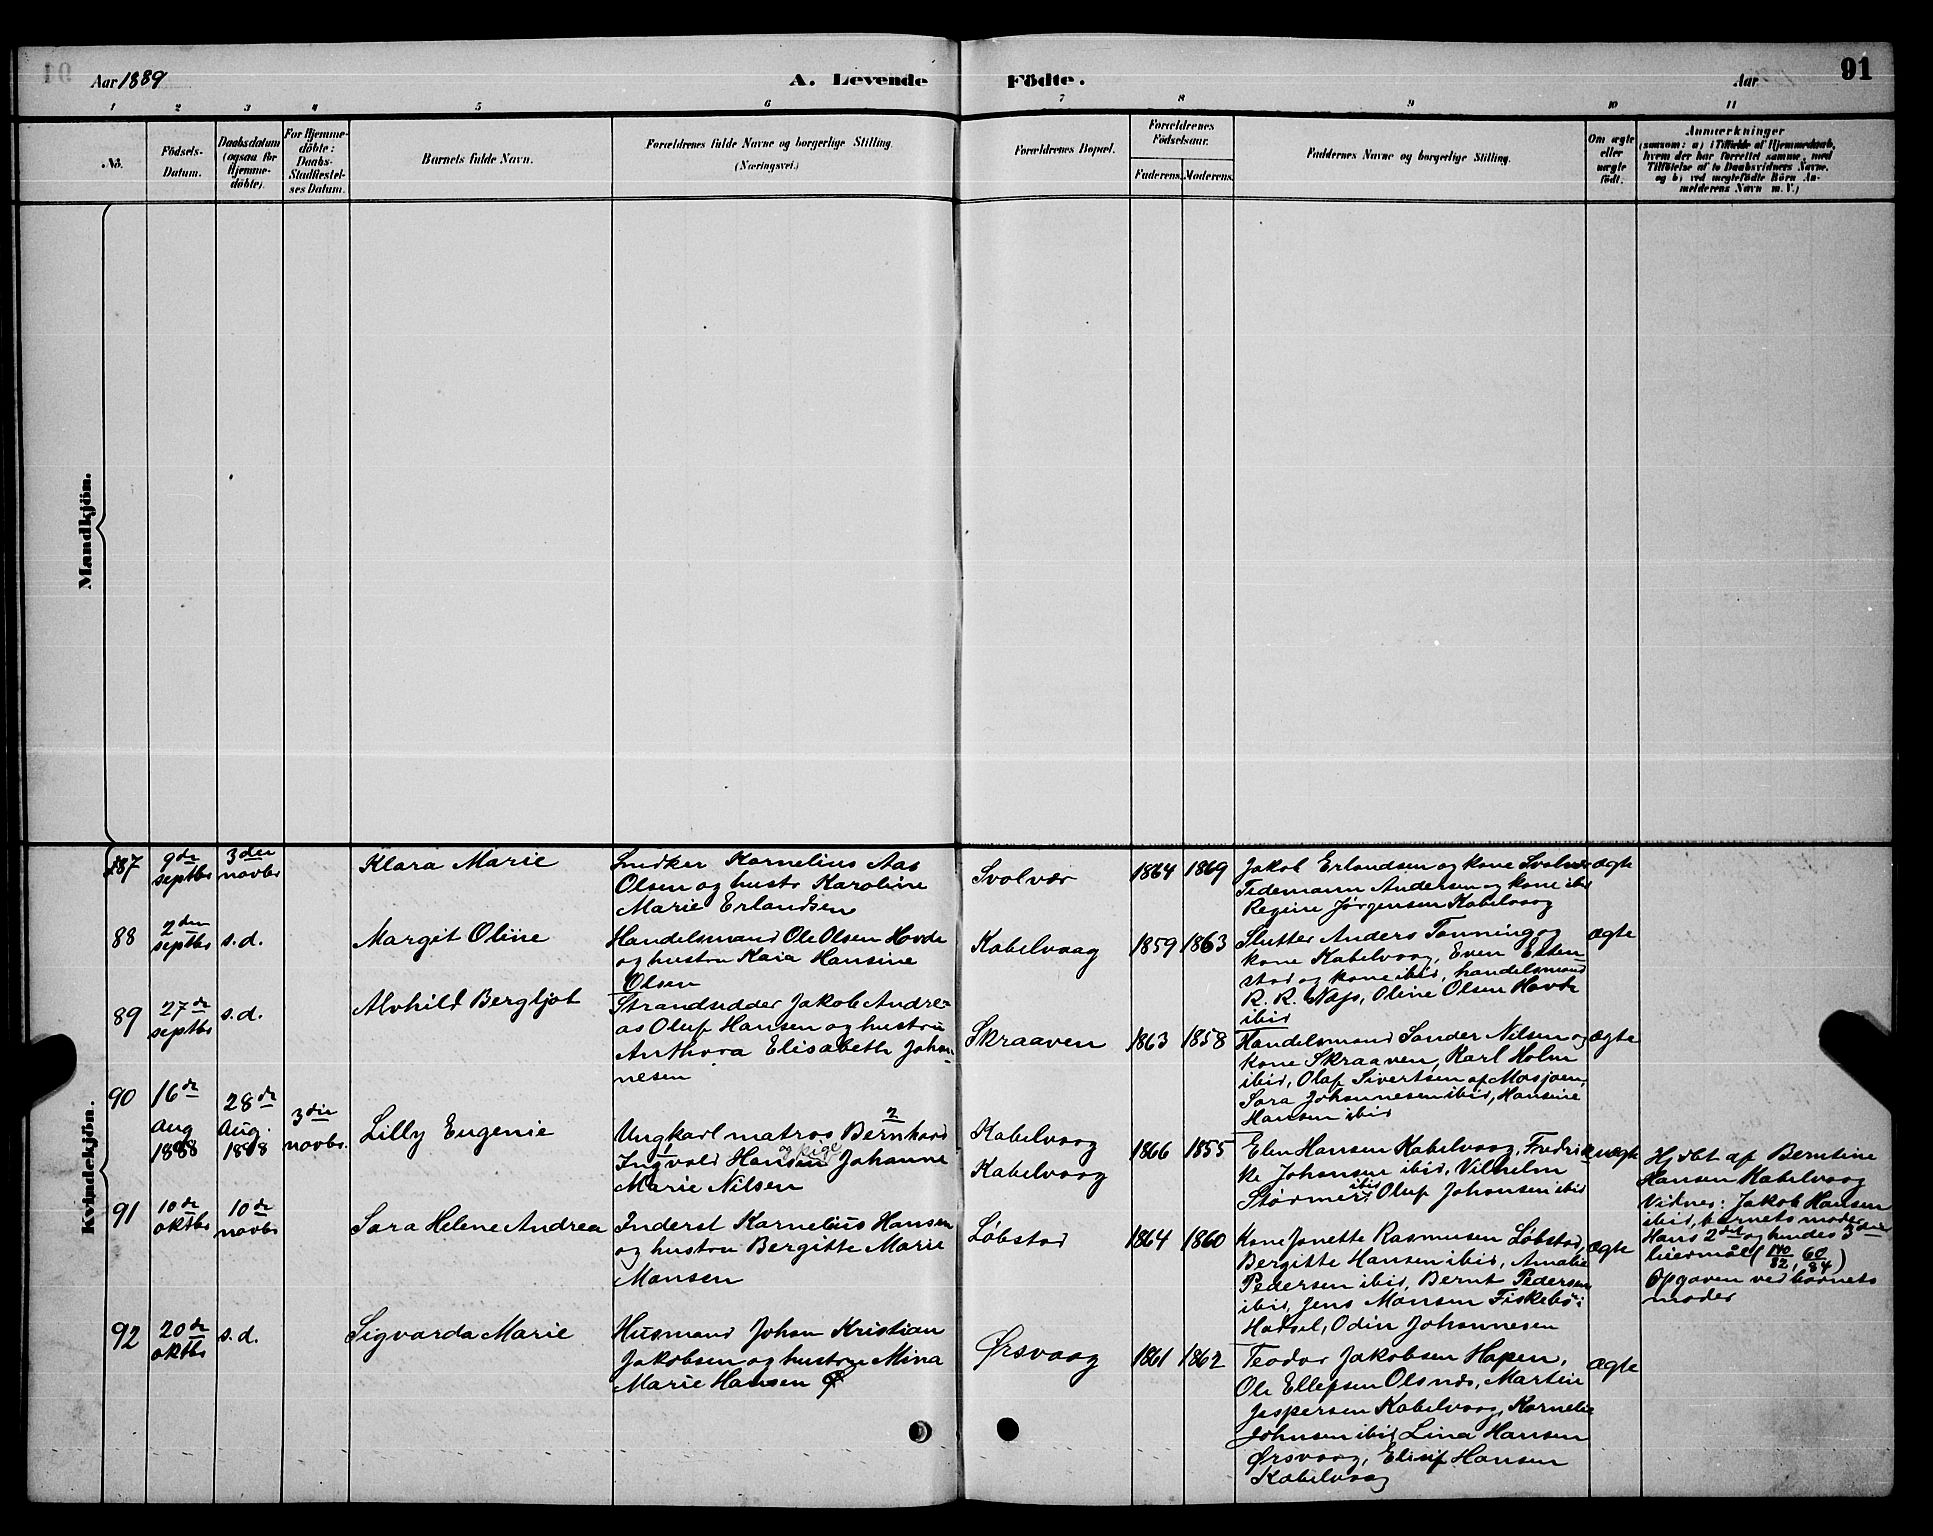 Aar 1889
A. Levende
Födte.
Aar
91
1 2 3 4 5 6 7 8 9 10 11
No.
Födsels-
Datum.
Daabsdatum
(ogsaa for
Hjemme-
döbte).
For Hjemme-
döbte:
Daabs-
Stadfæstel-
ses Datum.
Barnets fulde Navn.
Forældrenes fulde Navne og borgerlige Stilling.
(Næringsvei.)
Forældrenes Bopæl.
Forældrenes
Födselsaar.
Faderens. Moderens.
Faddernes Navne og borgerlige Stilling.
Om ægte
eller
uægte
födt.
Anmærkninger
(saasom: a) i Tilfælde af Hjemmedaab,
hvem der har forrettet samme, med
Tilföielse af to Daabsvidners Navne.
og b) ved uægtefödte Börn An-
melderens Navn m. V.)
Mandkjön.
Kvindekjön.
87
9de
septbr
3die
novbr
Klara Marie
Snedker Kornelius Aas
Olsen og hustr Karoline
Marie Erlandsen
Svolvær
1864 1869
Jakob Erlandsen og kone Svolvær
Tidemann Andersen og kone ibid
Regine Jørgensen Kabelvaag
ægte
88
2den
septbr
s.d.
Margit Oline
Handelsmand Ole Olsen Hovde
og hustru Kaia Hansine
Olsen
Kabelvaag
1859 1863
Slutter Anders Tønning og
kone Kabelvaag, Even Esten-
stad og kone ibid, handelsmand
R. R. Næss, Oline Olsen Hovde
ibid
ægte
89
27de
septbr
s.d.
Alvhild Bergljot
Strandsidder Jakob Andre-
as Oluf Hansen og hustru
Anthora Elisabeth Johan-
nesen
Skraaven
1863 1858
Handelsmand Sander Nilsen og
kone Skraaven, Karl Holm
ibid, Olaf Sivertsen af Mosjøen,
Sara Johannesen ibid, Hansine
Hansen ibid
ægte
90
16de
Aug
1888
28de
Aug.
1888
3die
novbr.
Lilly Eugenie
Ungkarl matros Bernhard
Ingvald Hansen og pige Johanne
Marie Nilsen
Kabelvaag
Kabelvaag
1866 1855
Elen Hansen Kabelvaag, Fredrik-
ke Johansen ibid, Vilhelm
Størmer ibid, Oluf Johansen ibid
uægte
Hj.dbt af Berntine
Hansen Kabelvaag
Vidner: Jakob Hansen
ibid, barnets moder
Hans 2det og hendes 3die
leiermål (140/82, 60/84)
Opgaven ved barnets
moder
91
10de
oktbr
10de
novbr
Sara Helene Andrea
Inderst Kornelius Hansen
og hustru Bergitte Marie
Monsen
Løbstad
1864 1860
Kone Janette Rasmusen Løbstad,
Bergitte Hansen ibid, Amalie
Pedersen ibid, Bernt Pedersen
ibid, Jens Monsen Fiskebøl i
Hadsel, Odin Johannesen
ægte
92
20de
oktbr
s.d.
Sigvarda Marie
Husmand Johan Kristian
Jakobsen og hustru Mina
Marie Hansen
Ørsvaag
1861 1862
Teodor Jakobsen Hopen,
Ole Ellefsen Olsnæs, Martin
Jespersen Kabelvaag, Kornelie
Johnsen ibid, Lina Hansen
Ørsvaag, Elisif Hansen
Kabelvaag
ægte